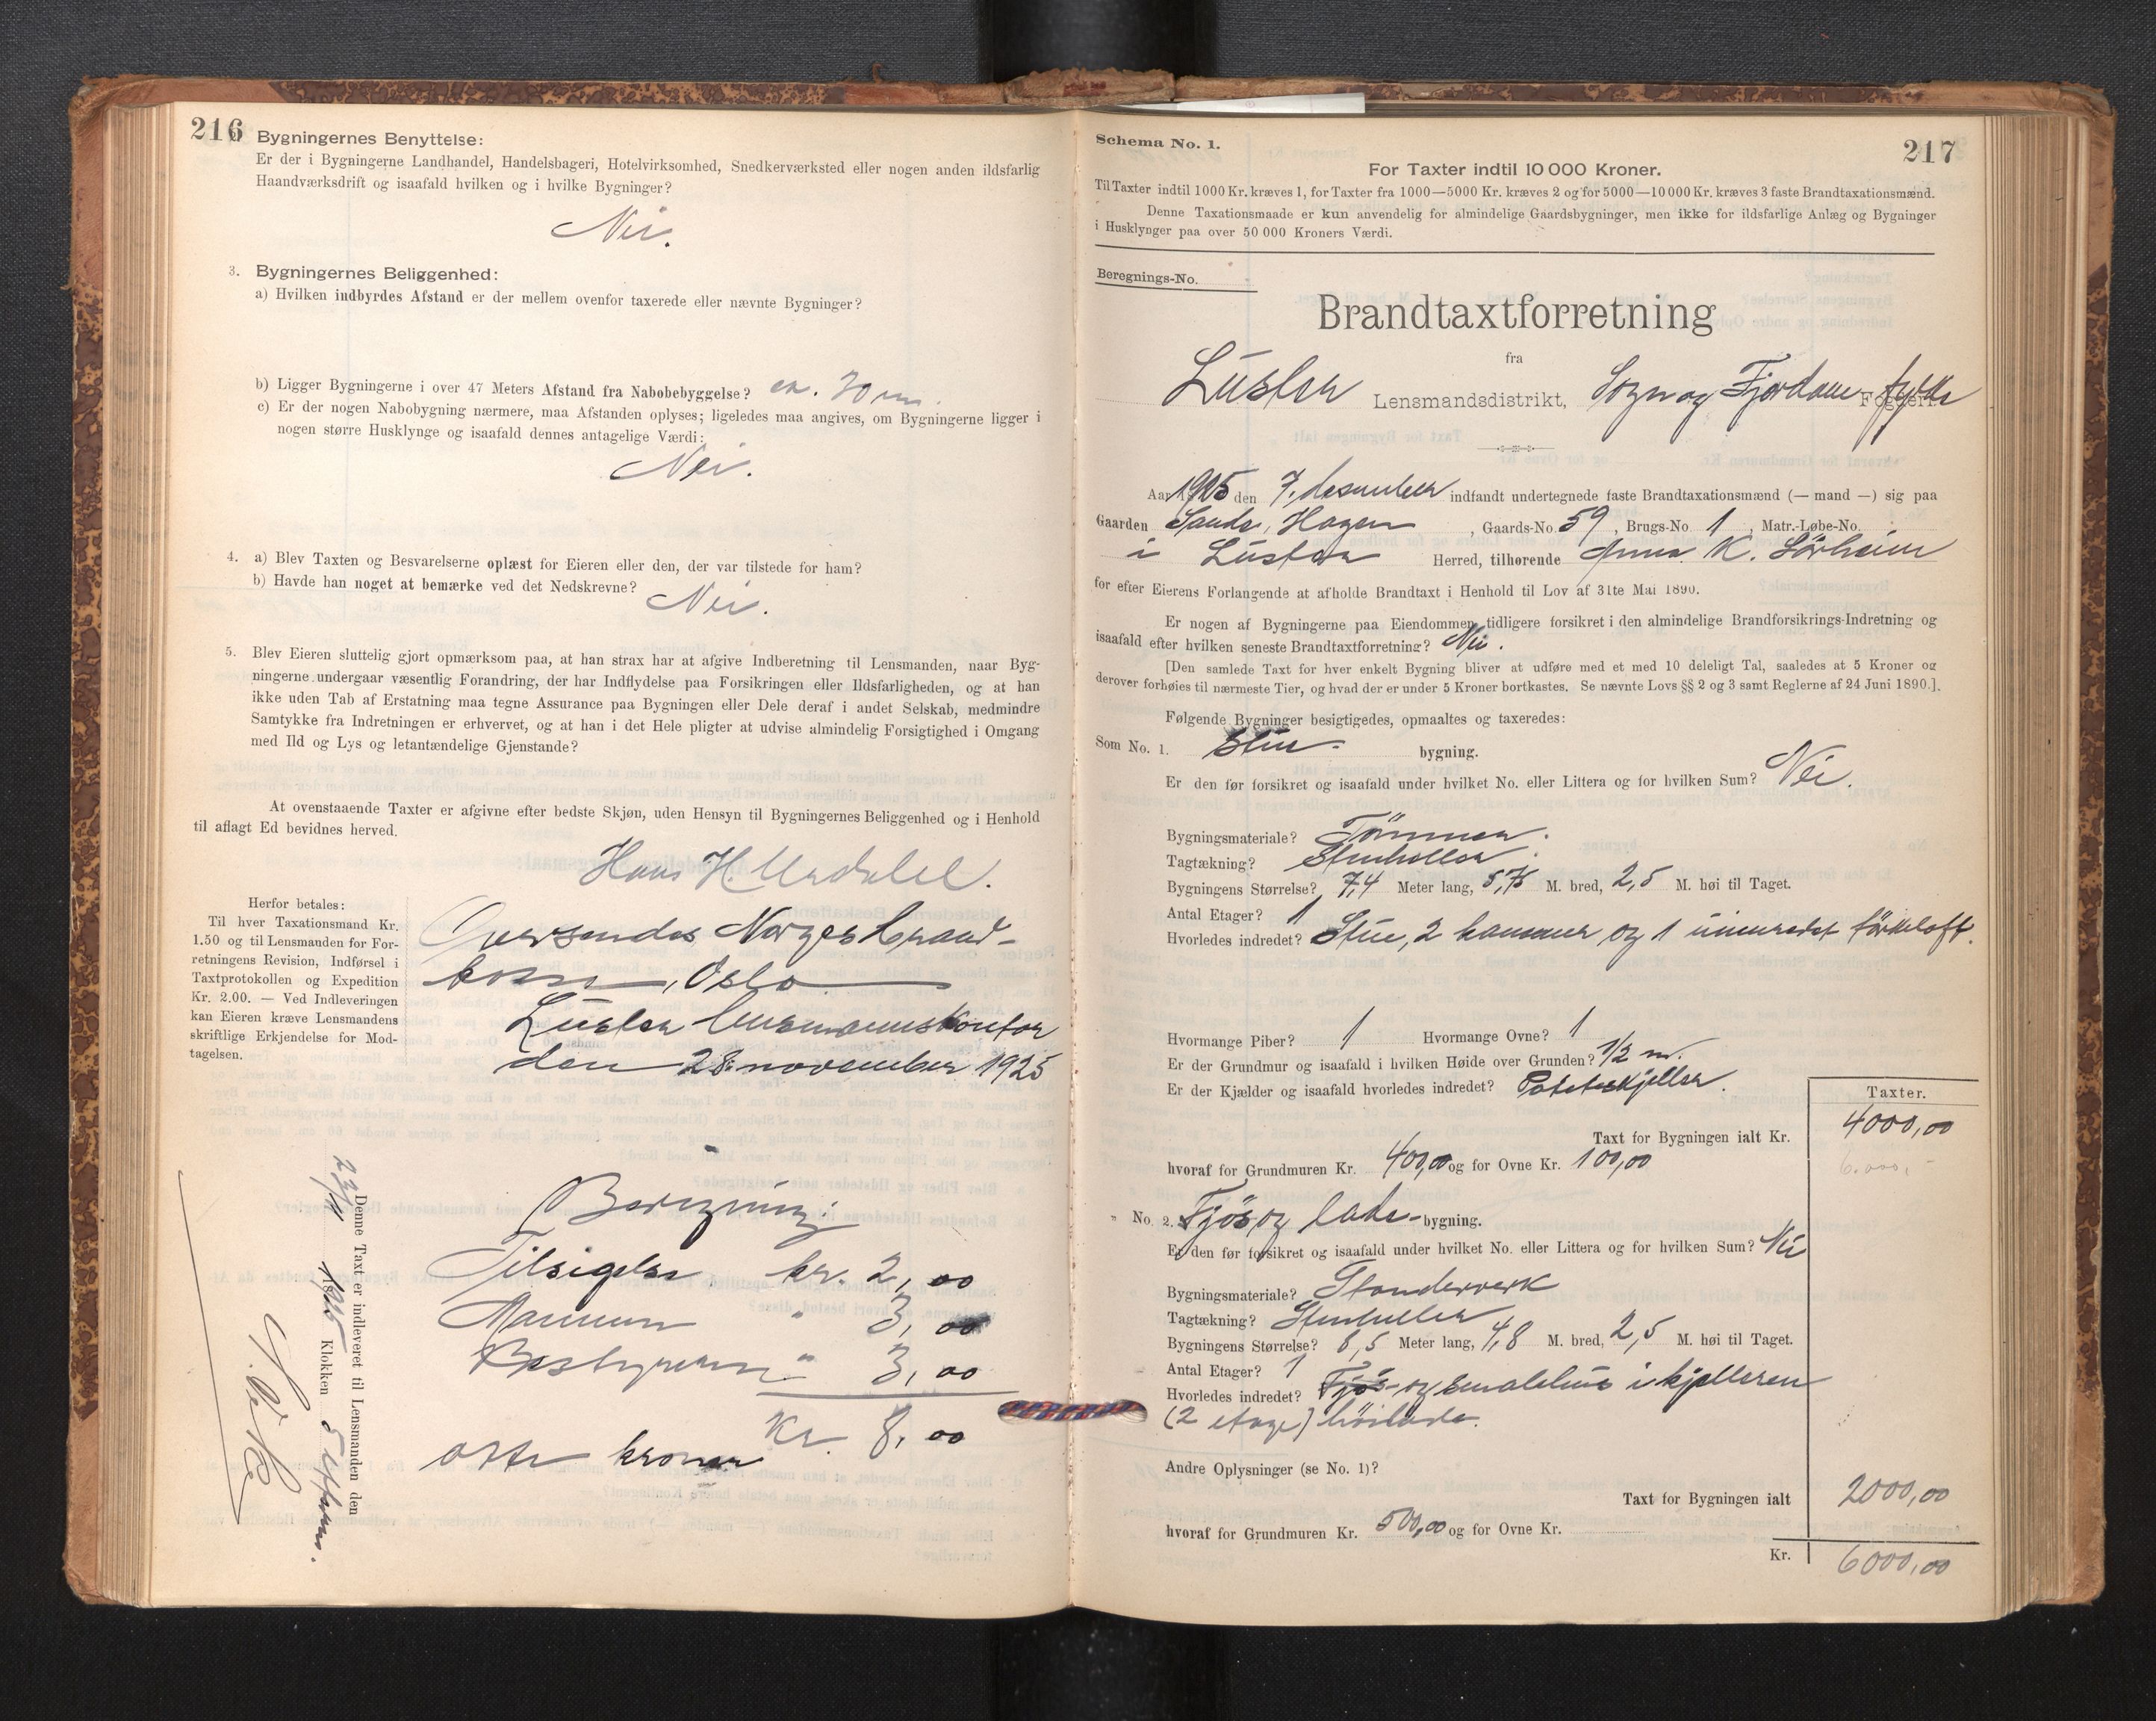 216
Bygningernes Benyttelse:
Er der i Bygningerne Landhandel, Handelsbageri, Hotelvirksomhed, Snedkerværksted eller nogen anden ildsfarlig
Haandværksdrift og isaafald hvilken og i hvilke Bygninger?
Nei.
3. Bygningernes Beliggenhed:
a) Hvilken indbyrdes Afstand er der mellem ovenfor taxerede eller nævnte Bygninger?
b) Ligger Bygningerne i over 47 Meters Afstand fra Nabobebyggelse? ca. 70 m.
c) Er der nogen Nabobygning nærmere, maa Afstanden oplyses; ligeledes maa angives, om Bygningerne ligger i
nogen større Husklynge og isaafald dennes antagelige Værdi:
Nei.
4. a) Blev Taxten og Besvarelserne oplæst for Eieren eller den, der var tilstede for ham?
b) Havde han noget at bemærke ved det Nedskrevne? Nei.
5. Blev Eieren sluttelig gjort opmærksom paa, at han strax har at afgive Indberetning til Lensmanden, naar Byg-
ningerne undergaar væsentlig Forandring, der har Indflydelse paa Forsikringen eller Ildsfarligheden, og at han
ikke uden Tab af Erstatning maa tegne Assurance paa Bygningen eller Dele deraf i andet Selskab, medmindre
Samtykke fra Indretningen er erhvervet, og at han i det Hele pligter at udvise almindelig Forsigtighed i Omgang
med Ild og Lys og letantændelige Gjenstande?
At ovenstaaende Taxter er afgivne efter bedste Skjøn, uden Hensyn til Bygningernes Beliggenhed og i Henhold
til aflagt Ed bevidnes herved.
Hans H.
Herfor betales:
Til hver Taxationsmand Kr.
1.50 og til Lensmanden for For-
retningens Revision, Indførsel i
Taxtprotokollen og Expedition
Kr. 2.00. — Ved Indleveringen
kan Eieren kræve Lensmandens
skriftlige Erkjendelse for Mod-
tagelsen.
Oversendes Norges brand-
kasse, Oslo
Luster lensmannskontor
den 28. november 1925
Beregning:
Tilsigelse kr. 2,00
Mannen " 3,00
Bestyreren " 3,00
Kr. 8,00
otte kroner
Denne Taxt er indleveret til Lensmanden den
1925 Klokken 5
Schema No. 1.
217
For Taxter indtil 10 000 Kroner.
Til Taxter indtil 1000 Kr. kræves 1, for Taxter fra 1000—5000 Kr. kræves 2 og for 5000—10 000 Kr. kræves 3 faste Brandtaxationsmænd.
Denne Taxationsmaade er kun anvendelig for almindelige Gaardsbygninger, men ikke for ildsfarlige Anlæg og Bygninger
i Husklynger paa over 50 000 Kroners Værdi.
Beregnings-No.
Brandtaxtforretning
fra
Luster Lensmandsdistrikt, Sogn og Fjordane fylke Fogderi.
Aar 1925 den 7. desember indfandt undertegnede faste Brandtaxationsmænd (— mand —) sig paa
Gaarden Sande, Hagen , Gaards-No. 59 , Brugs-No. 1 , Matr.-Løbe-No.
i Luster Herred, tilhørende Anna K. Sørheim
for efter Eierens Forlangende at afholde Brandtaxt i Henhold til Lov af 31te Mai 1890.
Er nogen af Bygningerne paa Eiendommen tidligere forsikret i den almindelige Brandforsikrings-Indretning og
isaafald efter hvilken seneste Brandtaxtforretning? Nei.
[Den samlede Taxt for hver enkelt Bygning bliver at udføre med et med 10 deleligt Tal, saaledes at 5 Kroner og
derover forhøies til nærmeste Tier, og hvad der er under 5 Kroner bortkastes. Se nævnte Lovs §§ 2 og 3 samt Reglerne af 24 Juni 1890.].
Følgende Bygninger besigtigedes, opmaaltes og taxeredes:
Som No. 1. Stue- bygning.
Er den før forsikret og isaafald under hvilket No. eller Littera og for hvilken Sum? Nei.
Bygningsmateriale? Tømmer.
Tagtækning? Stenheller.
Bygningens Størrelse? 7,4 Meter lang, 5,75 M. bred, 2,5 M. høi til Taget.
Antal Etager? 1
Hvorledes indredet? Stue, 2 kammer og 1 uinnredet tørkeloft.
Hvormange Piber? 1 Hvormange Ovne? 1
Er der Grundmur og isaafald i hvilken Høide over Grunden? 1/2 m.
Er der Kjælder og isaafald hvorledes indredet? Potetskjeller.
Taxter.
Taxt for Bygningen ialt Kr. 4000,00
hvoraf for Grundmuren Kr. 400,00 og for Ovne Kr. 100,00
6.000,-
" No. 2. Fjøs og lade- bygning.
Er den før forsikret og isaafald under hvilket No. eller Littera og for hvilken Sum? Nei
Bygningsmateriale? Standerverk
Tagtækning? Stenheller
Bygningens Størrelse? 8,5 Meter lang, 4,8 M. bred, 2,5 M. høi til Taget.
Antal Etager? 1
Hvorledes indredet? Fjøs- og smalehus i kjelleren
(2 etage) høilade.
Andre Oplysninger (se No. 1)?
Taxt for Bygningen ialt 2000,00
hvoraf for Grundmuren Kr. 500,00 og for Ovne Kr.
Kr. 6000,00